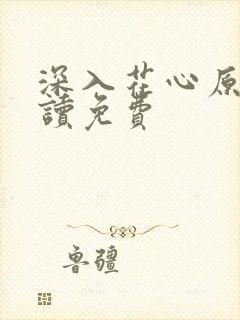 深入花心原
讀免費
魯疆